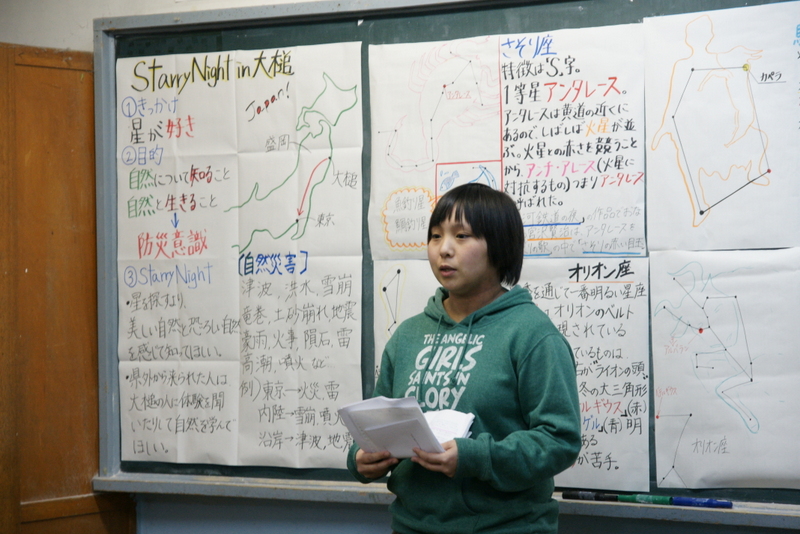 StarryNight in 大槌
①きっかけ
星が好き
②目的
自然について知ること
自然と生きること
↓
防災意識
③StarryNight
・星を探すより、
美しい自然と恐ろしい自然
を感じて知ってほしい。
・県外から来られた人は
大槌の人に体験を聞
いたりして自然を学んで
ほしい。
Japan!
盛岡
大槌
東京
[自然災害]
津波、洪水、雪崩
竜巻、土砂崩れ、地震
豪雨、火事、隕石、雷
高潮、噴火 など
例)東京→火災、雷
内陸→雪崩、噴火
沿岸→津波、地震
さそり座
特徴は'S'字。
1等星アンタレース。
アンタレースは黄道の近くに
あるので、しばしば火星が並
ぶ。火星との赤さを競うこと
から、アンチ・アレース(火星に
対抗するもの)つまりアンタレース
と呼ばれた。
アンタレース
魚釣り星
カペラ
オリオン座
を通じて一番明るい星座
オリオンのベルト
現されている
ているものは
ライオンの頭。
冬の大三角形
ルギウス(赤)
ゲル(青)明
ある
が苦手。
オリオン座
THE ANGELIC
GIRLS
SAINTS IN
GLORY